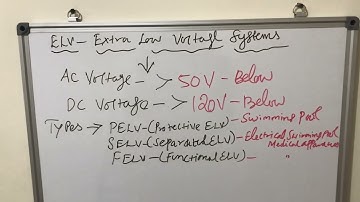 ELV- Extra Low Voltage Systems
AC Voltage - > 50V - Below
DC Voltage - > 120V - Below
Types → PELV-(Protective ELV) - Swimming Pool
SELV-(Separated ELV) - Electrical Swimming Pool
Medical apparatus
FELV-(Functional ELV) - "